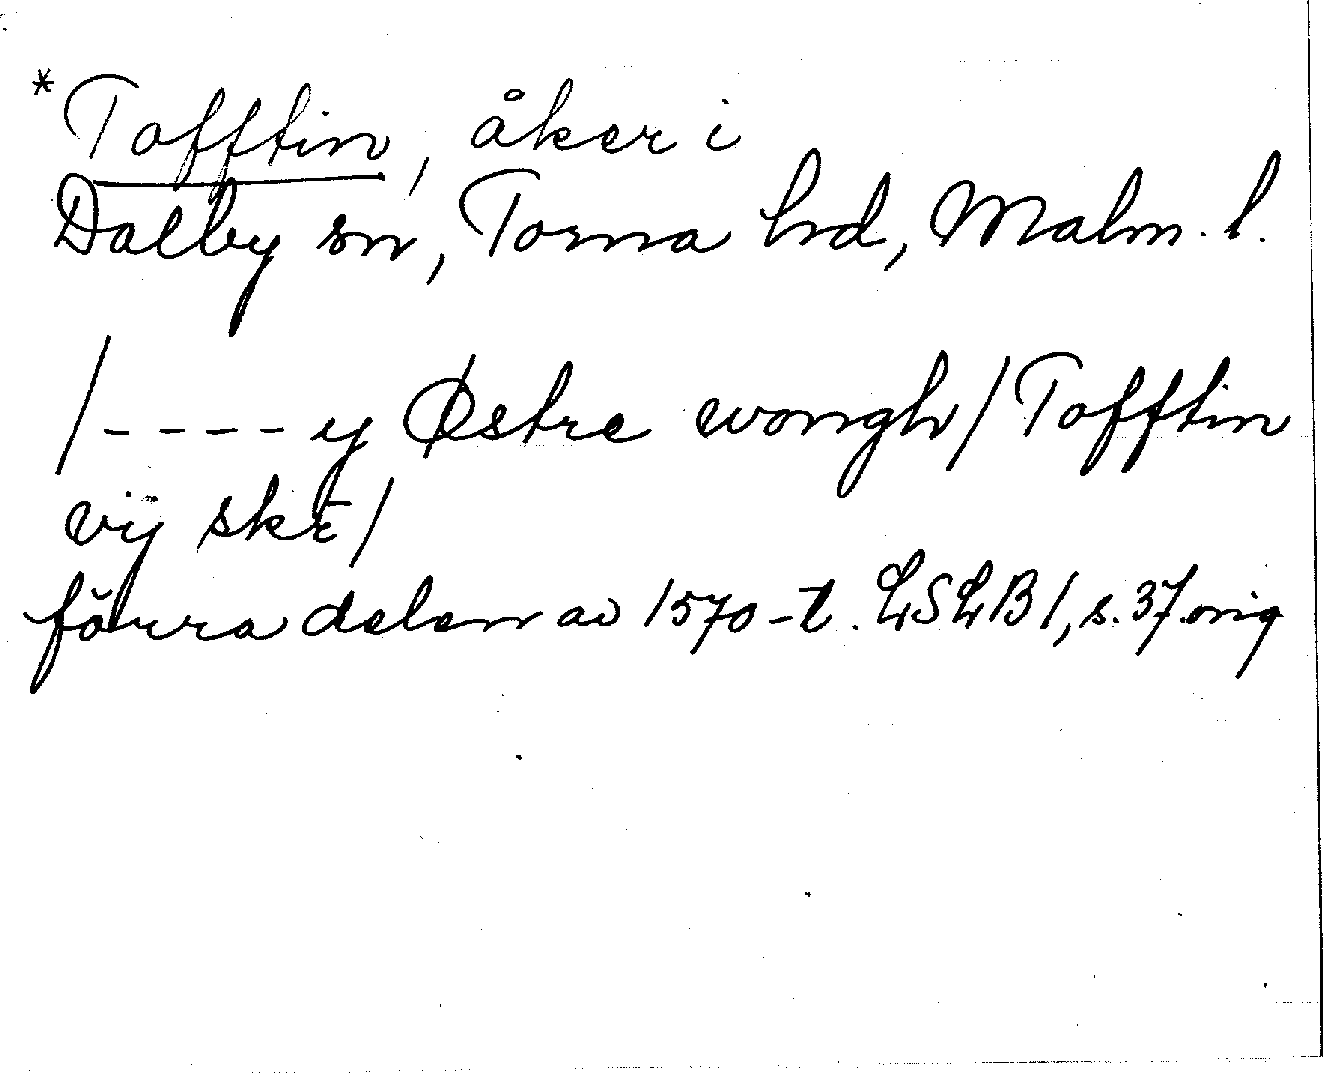 *Tofftin, åker i
Dalby sn, Torna hrd, Malm. l.
/---- y Østre wongh/ Tofftin
vij skē/
förra delen av 1570-t. LSLB 1, s. 37 orig